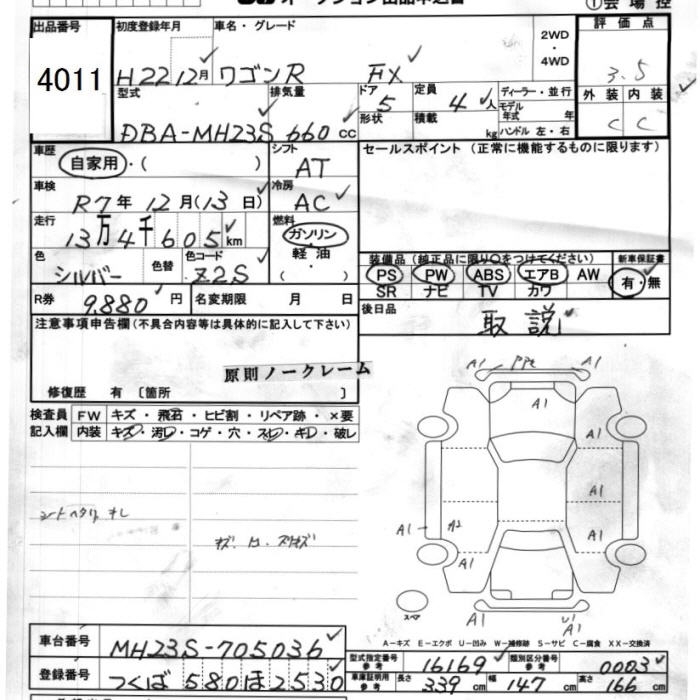 オークション出品申込書
①会場控
出品番号 初度登録年月 車名・グレード 評価点
4011 H22 12月 ワゴンR FX 2WD・4WD 3.5
型式 排気量 ドア 定員 ディーラー・並行 外装 内装
DBA-MH23S 660cc 5 4人 モデル年式 年 C C
形状 積載 kg ハンドル 左・右
車歴 シフト セールスポイント (正常に機能するものに限ります)
自家用・( ) AT
車検 冷房
R7年12月(13日) AC
走行 燃料
13万4千605km ガソリン・軽油・( )
色 色替 色コード 装備品 (純正品に限り○をつけてください) 新車保証書
シルバー Z2S PS PW ABS エアB AW 有・無
SR ナビ TV カワ
R券 9,880円 名変期限 月 日 後日品 取説
注意事項申告欄 (不具合内容等は具体的に記入して下さい)
原則ノークレーム
修復歴 有 〔箇所 〕
検査員 FW キズ・飛石・ヒビ割・リペア跡・×要
記入欄 内装 キズ・汚レ・コゲ・穴・スレ・キレ・破レ
A1 A1
A1
A1
A1
A1 A2 A1
A1
スペア A1 A1
A-キズ E-エクボ U-凹み W-補修跡 S-サビ C-腐食 XX-交換済
車台番号 MH23S-705036
型式指定番号 参考 16169 類別区分番号 参考 0003
登録番号 つくば 580 ほ 2530
車庫証明用 参考 長さ 339cm 幅 147cm 高さ 166cm